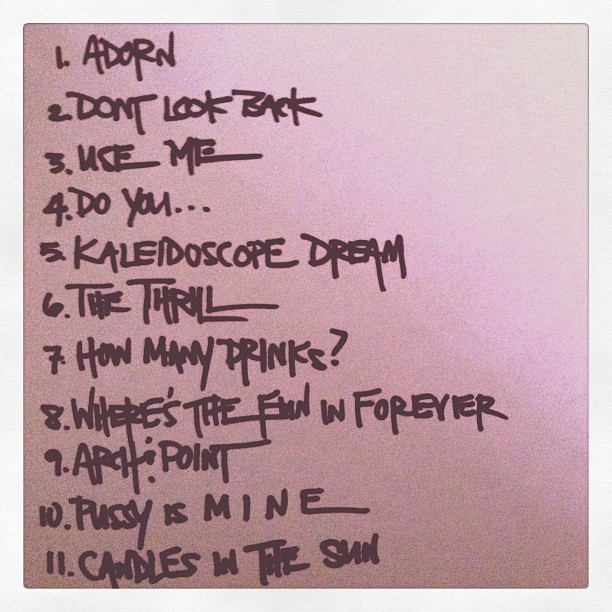 1. ADORN
2. DONT LOOK BACK
3. USE ME
4. DO YOU...
5. KALEIDOSCOPE DREAM
6. THE THRILL
7. HOW MANY DRINKS?
8. WHERE'S THE FUN IN FOREVER
9. ARCH & POINT
10. PUSSY IS MINE
11. CANDLES IN THE SUN